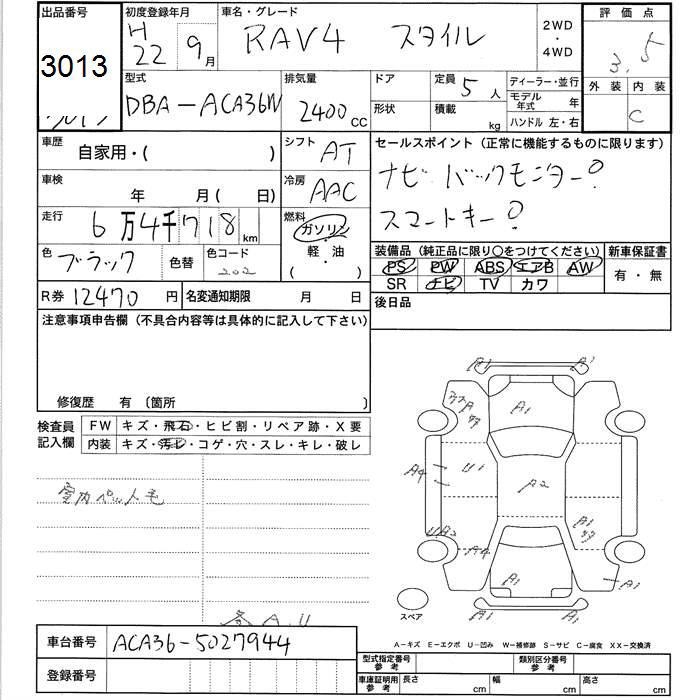 出品番号 初度登録年月 車名・グレード 2WD 評価点
3013 H22 9月 RAV4 スタイル ・ 3.5
4WD
型式 排気量 ドア 定員 5人 ディーラー・並行 外装 内装
DBA-ACA36W 2400cc モデル年式 年 C
形状 積載 kg ハンドル 左・右
車歴 自家用・( ) シフト AT セールスポイント (正常に機能するものに限ります)
車検 年 月( 日) 冷房 AAC ナビ バックモニター
走行 6万4千718km 燃料 ガソリン スマートキー
・
色 ブラック 色替 色コード 202 軽油 装備品 (純正品に限り○をつけてください) 新車保証書
( ) PS PW ABS エアB AW 有・無
R券 12470円 名変通知期限 月 日 SR ナビ TV カワ
注意事項申告欄 (不具合内容等は具体的に記入して下さい) 後日品
修復歴 有 〔箇所 〕
検査員記入欄 FW キズ・飛石・ヒビ割・リペア跡・X要
内装 キズ・汚レ・コゲ・穴・スレ・キレ・破レ
室内ペット毛
A1 A1
A A1
A4 U1 A2
UA2 A1
A4
A1 A1
A1 A1
スペア
A-キズ E-エクボ U-凹み W-補修跡 S-サビ C-腐食 XX-交換済
車台番号 ACA36-5027944
登録番号
型式指定番号 参考 類別区分番号 参考
車庫証明用 参考 長さ cm 幅 cm 高さ cm